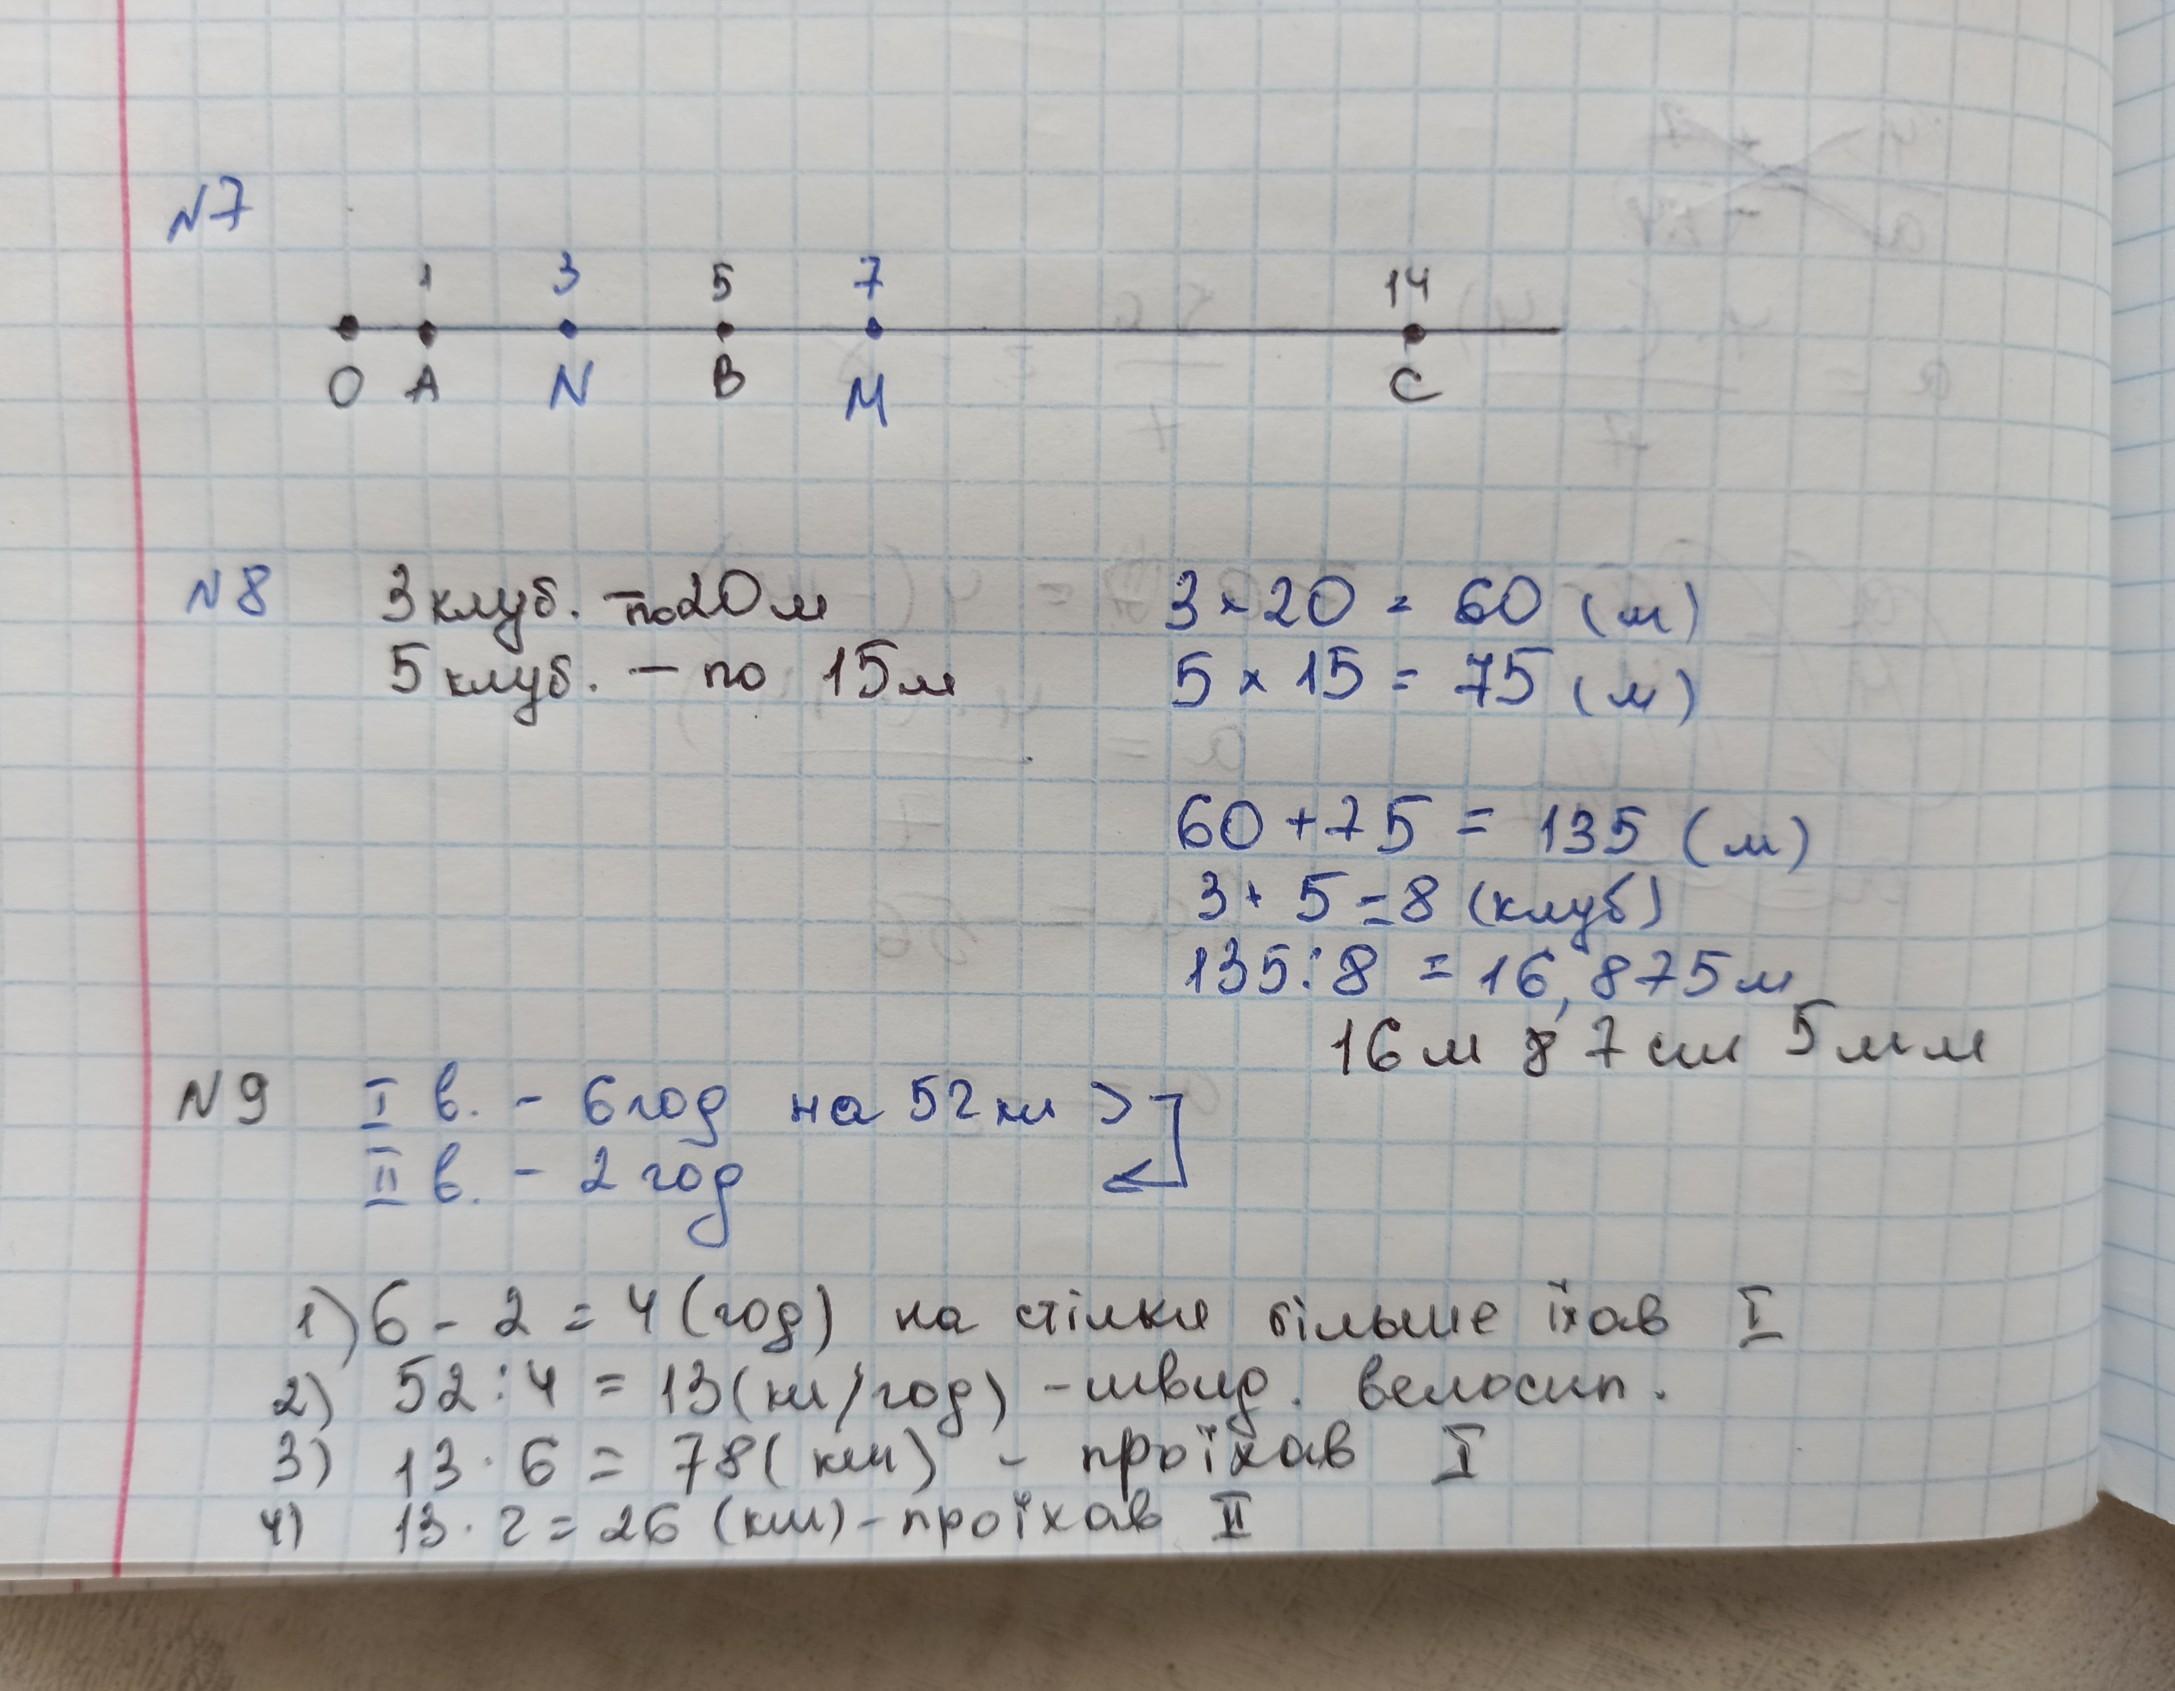 N7
1 3 5 7 14
O A N B M C
N8 3 клуб. - по 20 м 3 × 20 = 60 (м)
5 клуб. - по 15 м 5 × 15 = 75 (м)
60 + 75 = 135 (м)
3 + 5 = 8 (клуб)
135 : 8 = 16,875 м
16 м 87 см 5 мм
N9 I в. - 6 год на 52 км >
II в. - 2 год
1) 6 - 2 = 4 (год) на стільки більше їхав I
2) 52 : 4 = 13 (км/год) - швид. велосип.
3) 13 · 6 = 78 (км) - проїхав I
4) 13 · 2 = 26 (км) - проїхав II